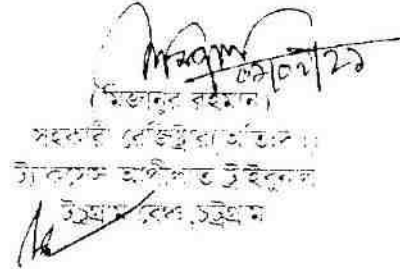 ০১/০২/২১
(মিজানুর রহমান)
সহকারী রেজিস্ট্রার
ট্যাকসেস আপীলাত ট্রাইবুনাল
চট্টগ্রাম বেঞ্চ, চট্টগ্রাম